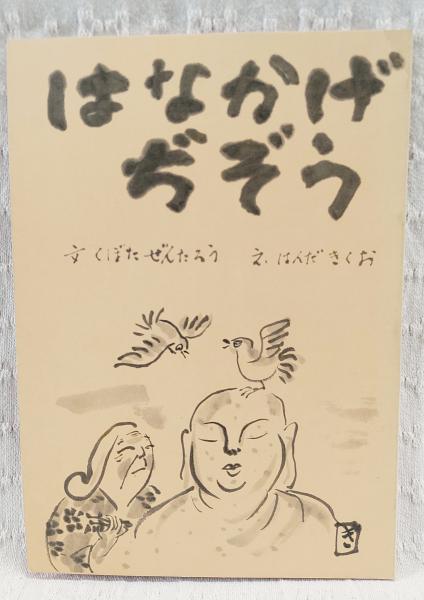 はなかげ
ぢぞう
文 くぼた ぜんたろう　え はんだ きくお
き